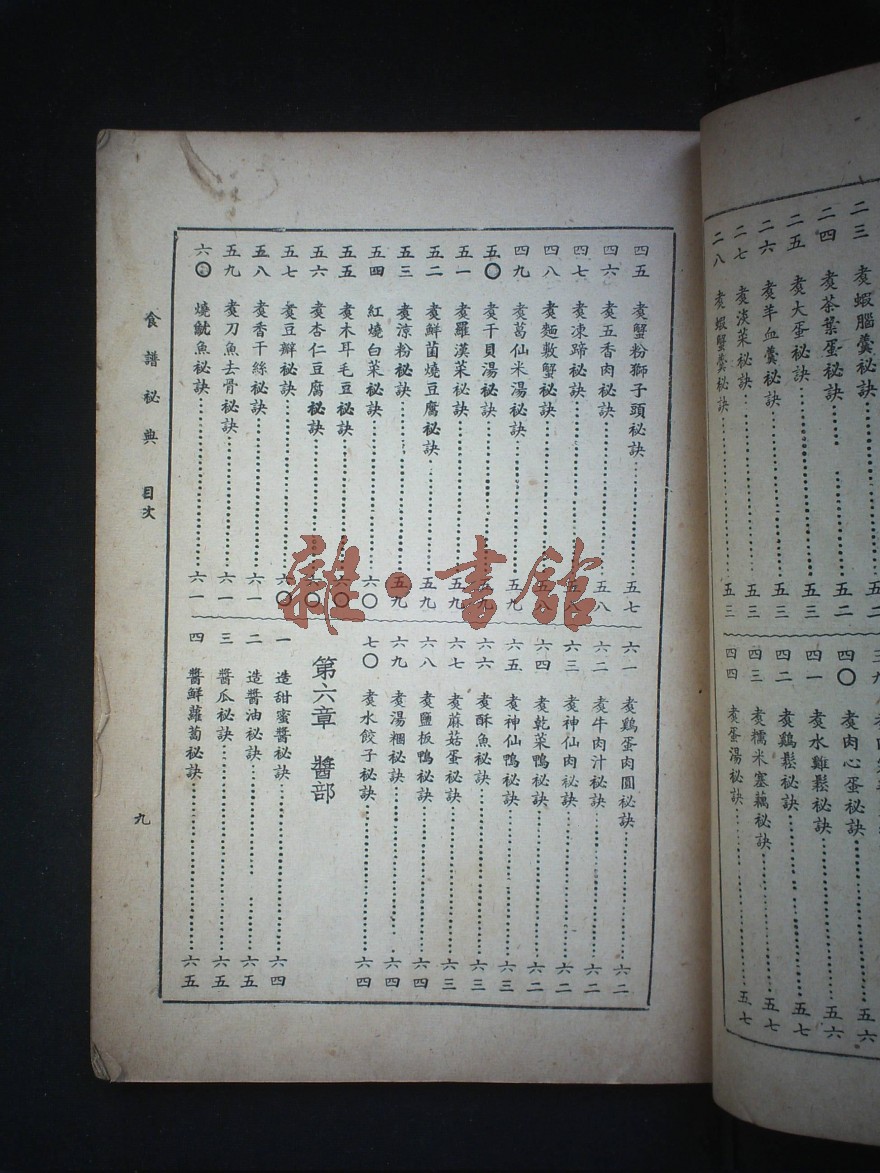 二三 煑蝦腦羹秘訣……五二
二四 煑茶葉蛋秘訣……五二
二五 煑大蛋秘訣……五三
二六 煑羊血羹秘訣……五三
二七 煑淡菜秘訣……五三
二八 煑蝦蟹羹秘訣……五三
四〇 煑肉心蛋秘訣……五六
四一 煑水雞鬆秘訣……五六
四二 煑鷄鬆秘訣……五七
四三 煑糯米塞藕秘訣……五七
四四 煑蛋湯秘訣……五七
四五 煑蟹粉獅子頭秘訣……五七
四六 煑五香肉秘訣……五八
四七 煑凍蹄秘訣……五八
四八 煑麵敷蟹秘訣……五八
四九 煑葛仙米湯秘訣……五九
五〇 煑干貝湯秘訣……五九
五一 煑羅漢菜秘訣……五九
五二 煑鮮菌燒豆腐秘訣……五九
五三 煑涼粉秘訣……五九
五四 紅燒白菜秘訣……六〇
五五 煑木耳毛豆秘訣……六〇
五六 煑杏仁豆腐秘訣……六〇
五七 煑豆辦秘訣……六〇
五八 煑香干絲秘訣……六一
五九 煑刀魚去骨秘訣……六一
六〇 燒魷魚秘訣……六一
六一 煑鷄蛋肉圓秘訣……六二
六二 煑牛肉汁秘訣……六二
六三 煑神仙肉秘訣……六二
六四 煑乾菜鴨秘訣……六二
六五 煑神仙鴨秘訣……六三
六六 煑酥魚秘訣……六三
六七 煑蔴菇蛋秘訣……六三
六八 煑鹽板鴨秘訣……六四
六九 煑湯糰秘訣……六四
七〇 煑水餃子秘訣……六四
第六章 醬部
一 造甜蜜醬秘訣……六四
二 造醬油秘訣……六五
三 醬瓜秘訣……六五
四 醬鮮蘿蔔秘訣……六五
食譜秘典 目次 九
雜·書館